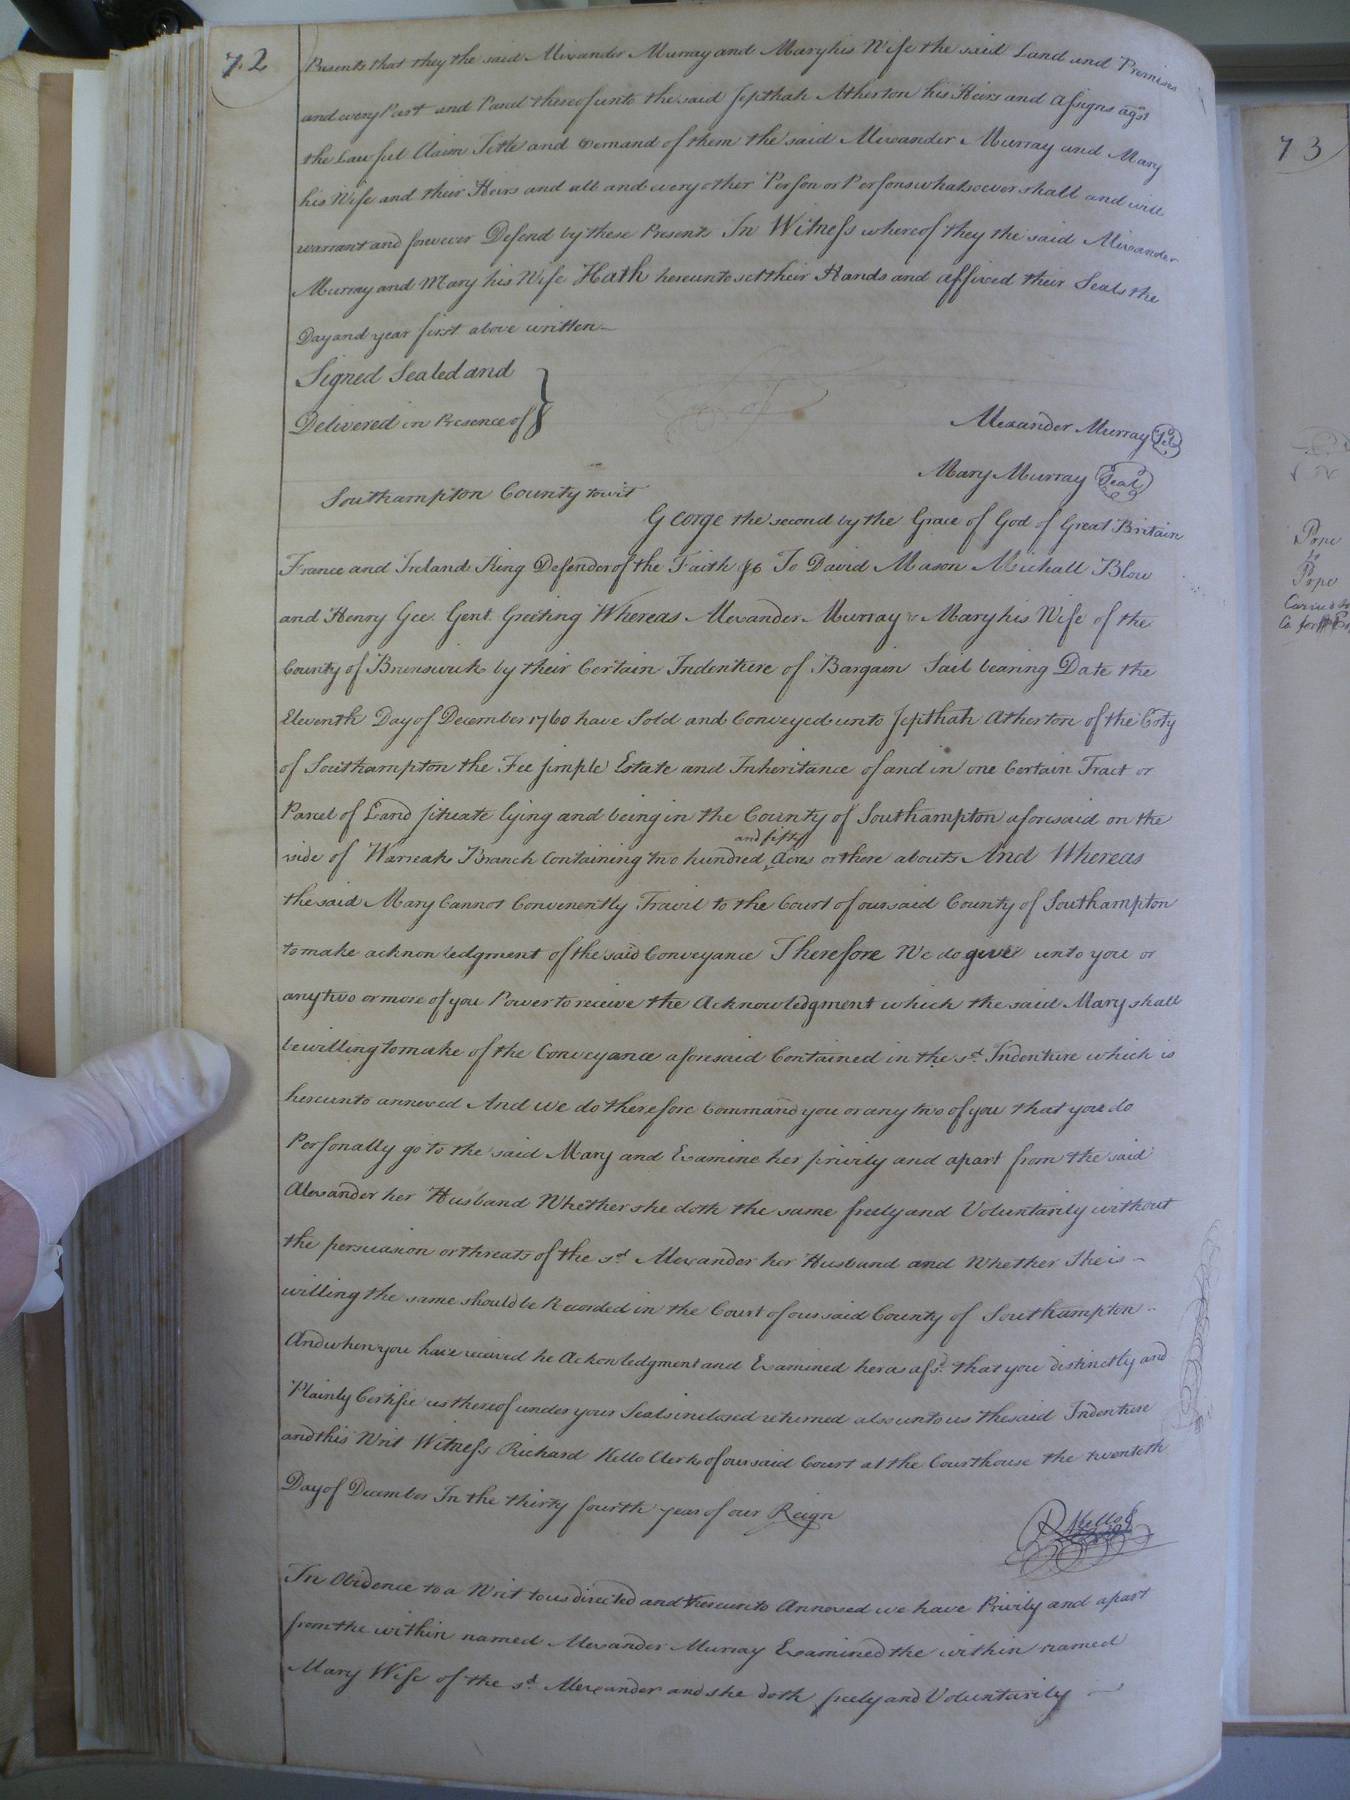 72
Presents that they the said Alexander Murray and Mary his Wife the said Land and Premises
and every Part and Parcel thereof unto the said Jepthah Atherton his Heirs and assigns agst
the Lawful Claim Title and Demand of them the said Alexander Murray and Mary
his Wife and their Heirs and all and every other Person or Persons whatsoever shall and will
warrant and forever Defend by these Presents In Witness whereof they the said Alexander
Murray and Mary his Wife Hath hereunto set their Hands and affixed their Seals the
Day and year first above written
Signed Sealed and
Delivered in Presence of
Alexander Murray Sel
Mary Murray Seal
Southampton County towit
George the second by the Grace of God of Great Britain
France and Ireland King Defender of the Faith &c To David Mason Michall Blow
and Henry Gee Gent. Greeting Whereas Alexander Murray & Mary his Wife of the
County of Brunswick by their Certain Indenture of Bargain Sail bearing Date the
Eleventh Day of December 1760 have Sold and Conveyed unto Jepthah Atherton of the Coty
of Southampton the Fee simple Estate and Inheritance of and in one Certain Tract or
Parcel of Land situate lying and being in the County of Southampton aforesaid on the
side of Warreak Branch Containing two hundred and fifty Acres or there abouts And Whereas
the said Mary Cannot Convenently Travil to the Court of our said County of Southampton
to make acknowledgment of the said Conveyance Therefore We do give unto you or
any two or more of you Power to receive the Acknowledgment which the said Mary shall
be willing to make of the Conveyance aforesaid Contained in the sd. Indenture which is
hereunto annexed And we do therefore Command you or any two of you that you do
Personally go to the said Mary and Examine her privily and apart from the said
Alexander her Husband Whether she doth the same freely and Voluntarily without
the persuasion or threats of the sd Alexander her Husband and Whether She is
willing the same should be Recorded in the Court of our said County of Southampton
And when you have received he Acknowledgment and Examined her as afsd. that you distinctly and
Plainly Certifie us thereof under your Seals inclosed returned also unto us the said Indenture
and this Writ Witness Richard Kello Clerk of our said Court at the Courthouse the twenteth
Day of December In the thirty fourth year of our Reign
R Kello
In Obidence to a Writ to us directed and thereunto Annexed we have Privily and apart
from the within named Alexander Murray Examined the within named
Mary Wife of the sd. Alexander and she doth freely and Voluntarily
73
Pope
to
Pope